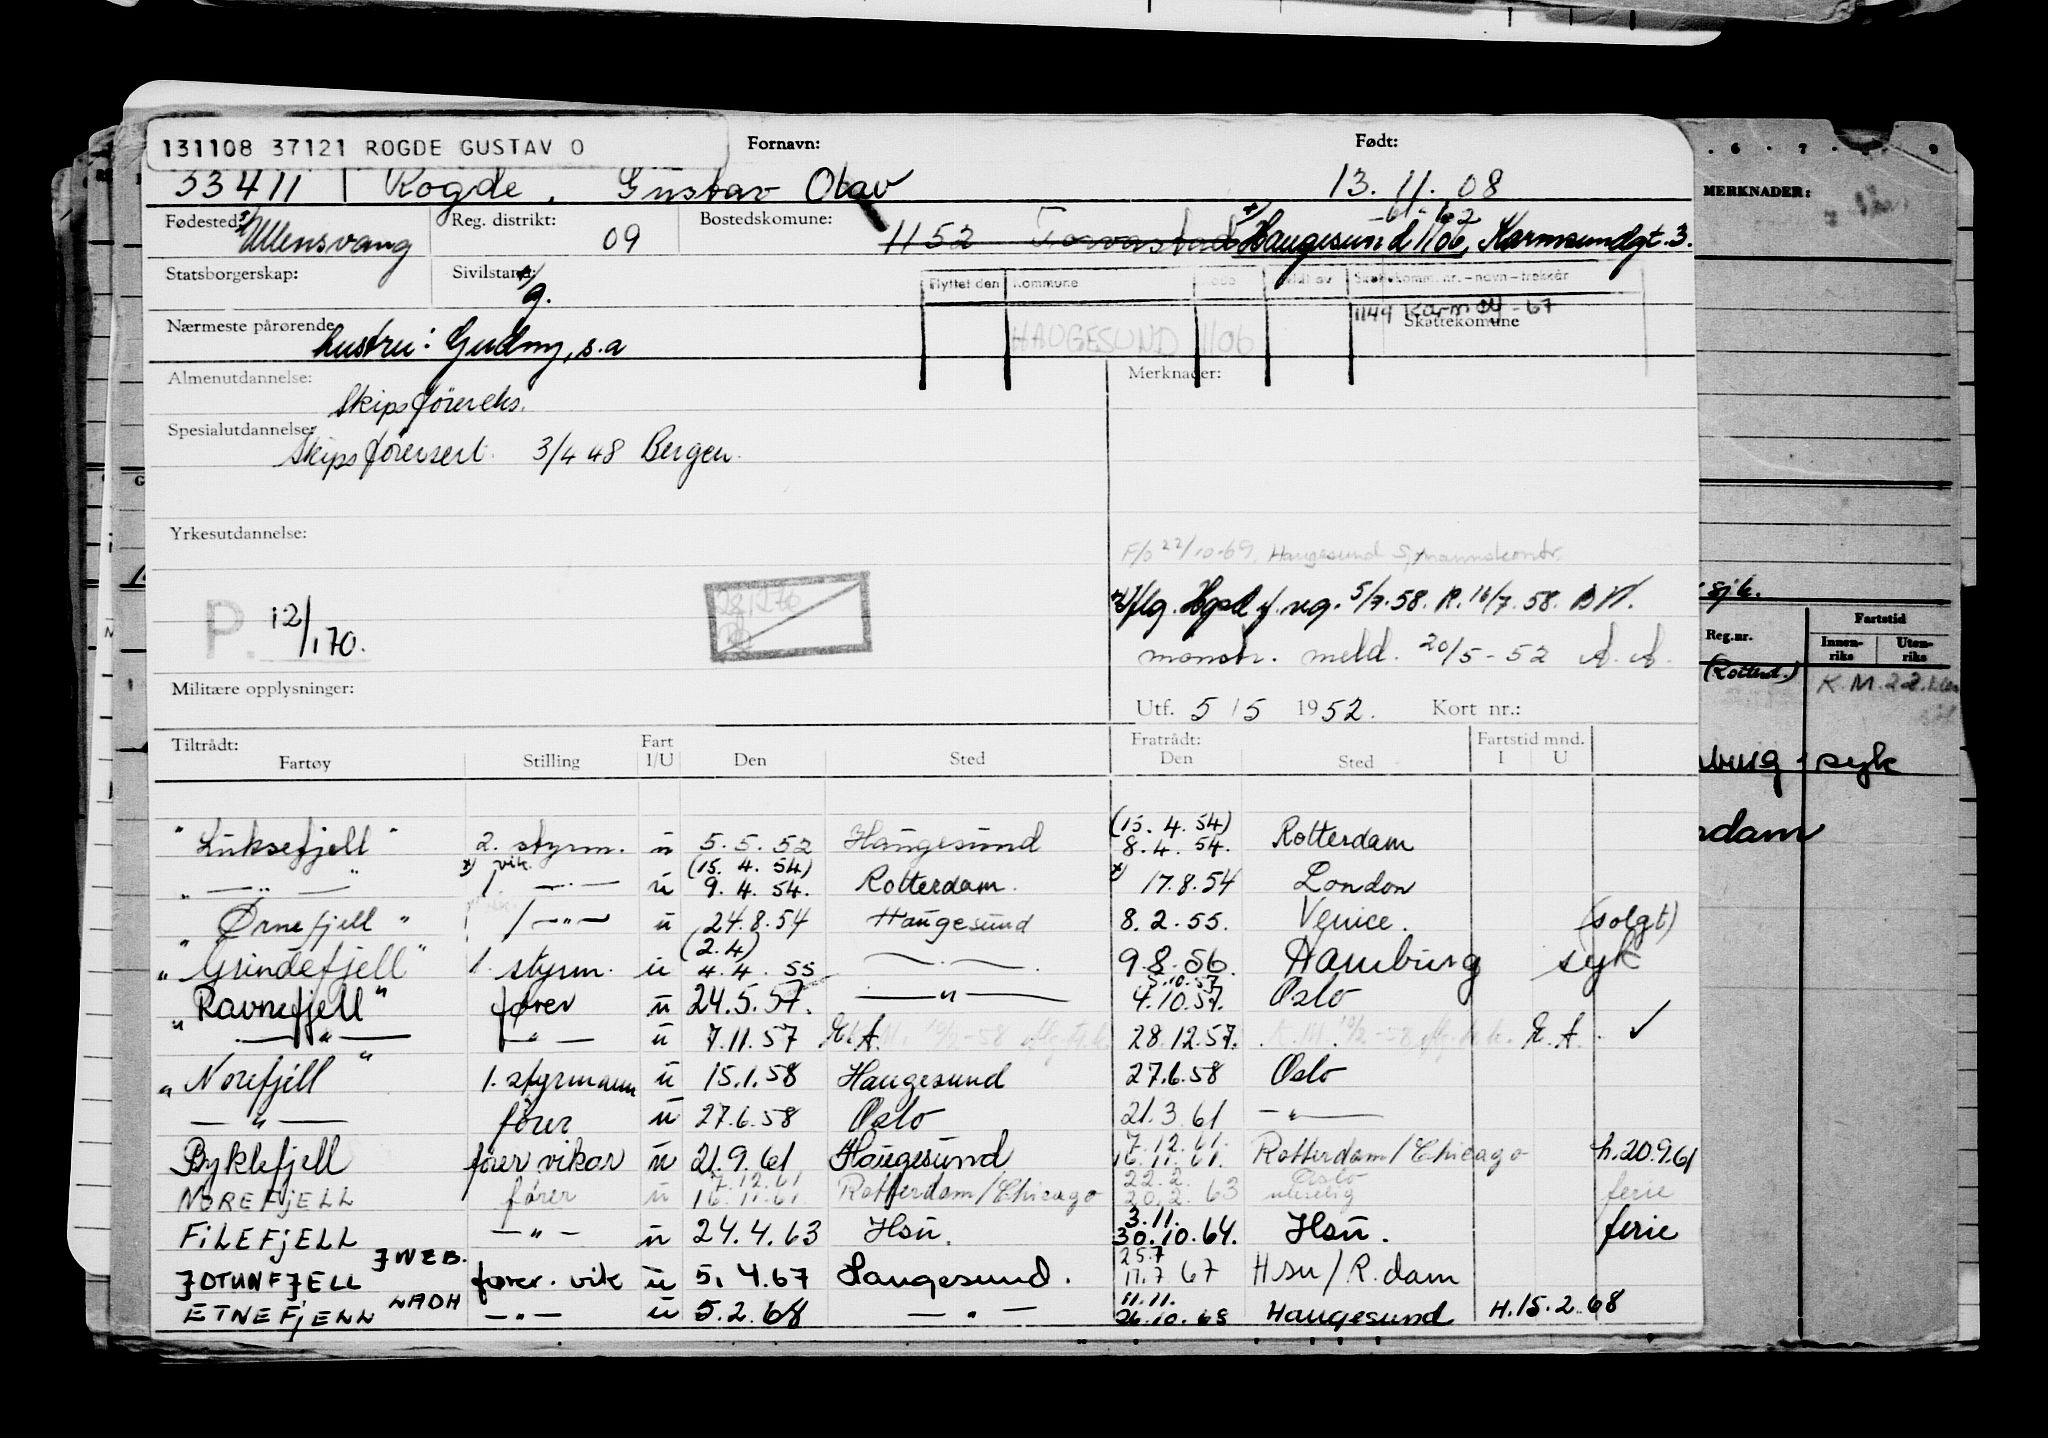 131108 37121 ROGDE GUSTAV O
Fornavn: Født:
53411 Rogde, Gustav Olav 13.11.08
Fødested: Ullensvang Reg. distrikt: 09 Bostedskomune: 1152 Torvastad Haugesund 1106, Karmsundgt. 3.
Statsborgerskap: Sivilstand: g.
Flyttet den Kommune Skattekomm. nr. - navn - trekkår
1149 Karmøy - 67
HAUGESUND 1106 Skattekomune
Nærmeste pårørende hustru: Gudny, s.a
Almenutdannelse: Merknader:
Skipsførereks.
Spesialutdannelse:
Skipsførersert. 3/4 48 Bergen.
Yrkesutdannelse:
F/o 22/10-69. Haugesund Sjømannskontr.
P. 12/1 70.
flg. Hgsd f. reg. 5/7.58. R. 16/7.58.
mønstr. meld. 20/5-52 A.A.
Militære opplysninger:
Utf. 5/5 1952. Kort nr.:
Tiltrådt: Fart Fratrådt: Fartstid mnd.
Fartøy Stilling I/U Den Sted Den Sted I U
(15.4.54)
"Luksefjell" 2. styrm. u 5.5.52 Haugesund 8.4.54. Rotterdam
vik. (15.4.54)
" — " — " 1. — " — u 9.4.54. Rotterdam. 17.8.54 London
"Ørnefjell" 1 — " — u 24.8.54 Haugesund 8.2.55. Venice. (solgt)
(2.4)
"Grindefjell" 1. styrm. u 4.4.55 — " — 9.8.56. Hamburg syk
5.10.57
"Ravnefjell" fører u 24.5.57. — " — 4.10.57. Oslo
— " — — " — u 7.11.57 E.A. 28.12.57. E.A. ✓
"Norefjell" 1. styrmann u 15.1.58 Haugesund 27.6.58 Oslo
— " — fører u 27.6.58 Oslo 21.3 61 — " —
7.12.61.
Byklefjell fører vikar u 21.9.61 Haugesund 16.11.61. Rotterdam/Chicago h.20.9.61
7.12.61 22.2. Oslo
NOREFJELL fører u 16.11.61. Rotterdam/Chicago 20.2.63 uleselig ferie
3.11.
FILEFJELL — " — u 24.4.63 Hsu. 30.10.64. Hsu. ferie
JWZB. 25.7
JOTUNFJELL fører. vik u 5.4.67 Haugesund. 17.7 67 Hsu/R.dam
LADH 11.11.
ETNEFJELL — " — u 5.2.68 — " — 26.10.68 Haugesund H.15.2.68
6 7 8 9
MERKNADER:
Reg.nr. Fartstid
Innenriks Utenriks
(Rotterd.) K.M.22.
syk